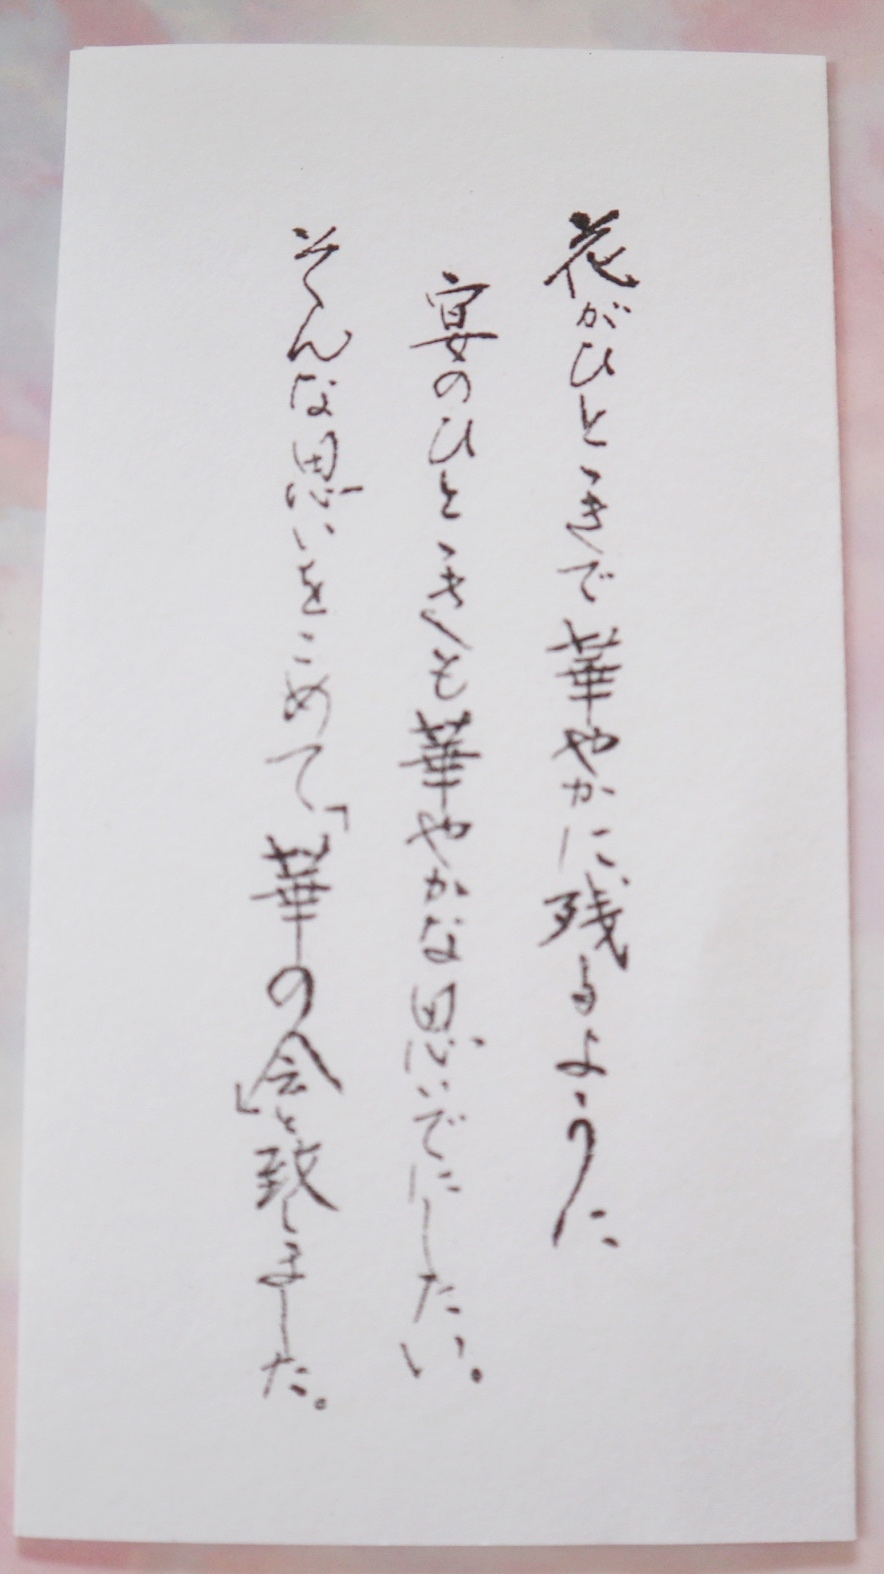 花がひとときで華やかに残るように
宴のひとときも華やかな思いでにしたい。
そんな思いをこめて、「華の会」と致しました。